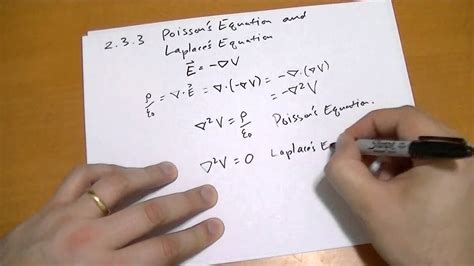 2.3.3 Poisson's Equation and
Laplace's Equation
E⃗ = -∇V
ρ/ε₀ = ∇·E⃗ = ∇·(-∇V) = -∇·(∇V)
= -∇²V
∇²V = ρ/ε₀ Poisson's Equation.
∇²V = 0 Laplace's E